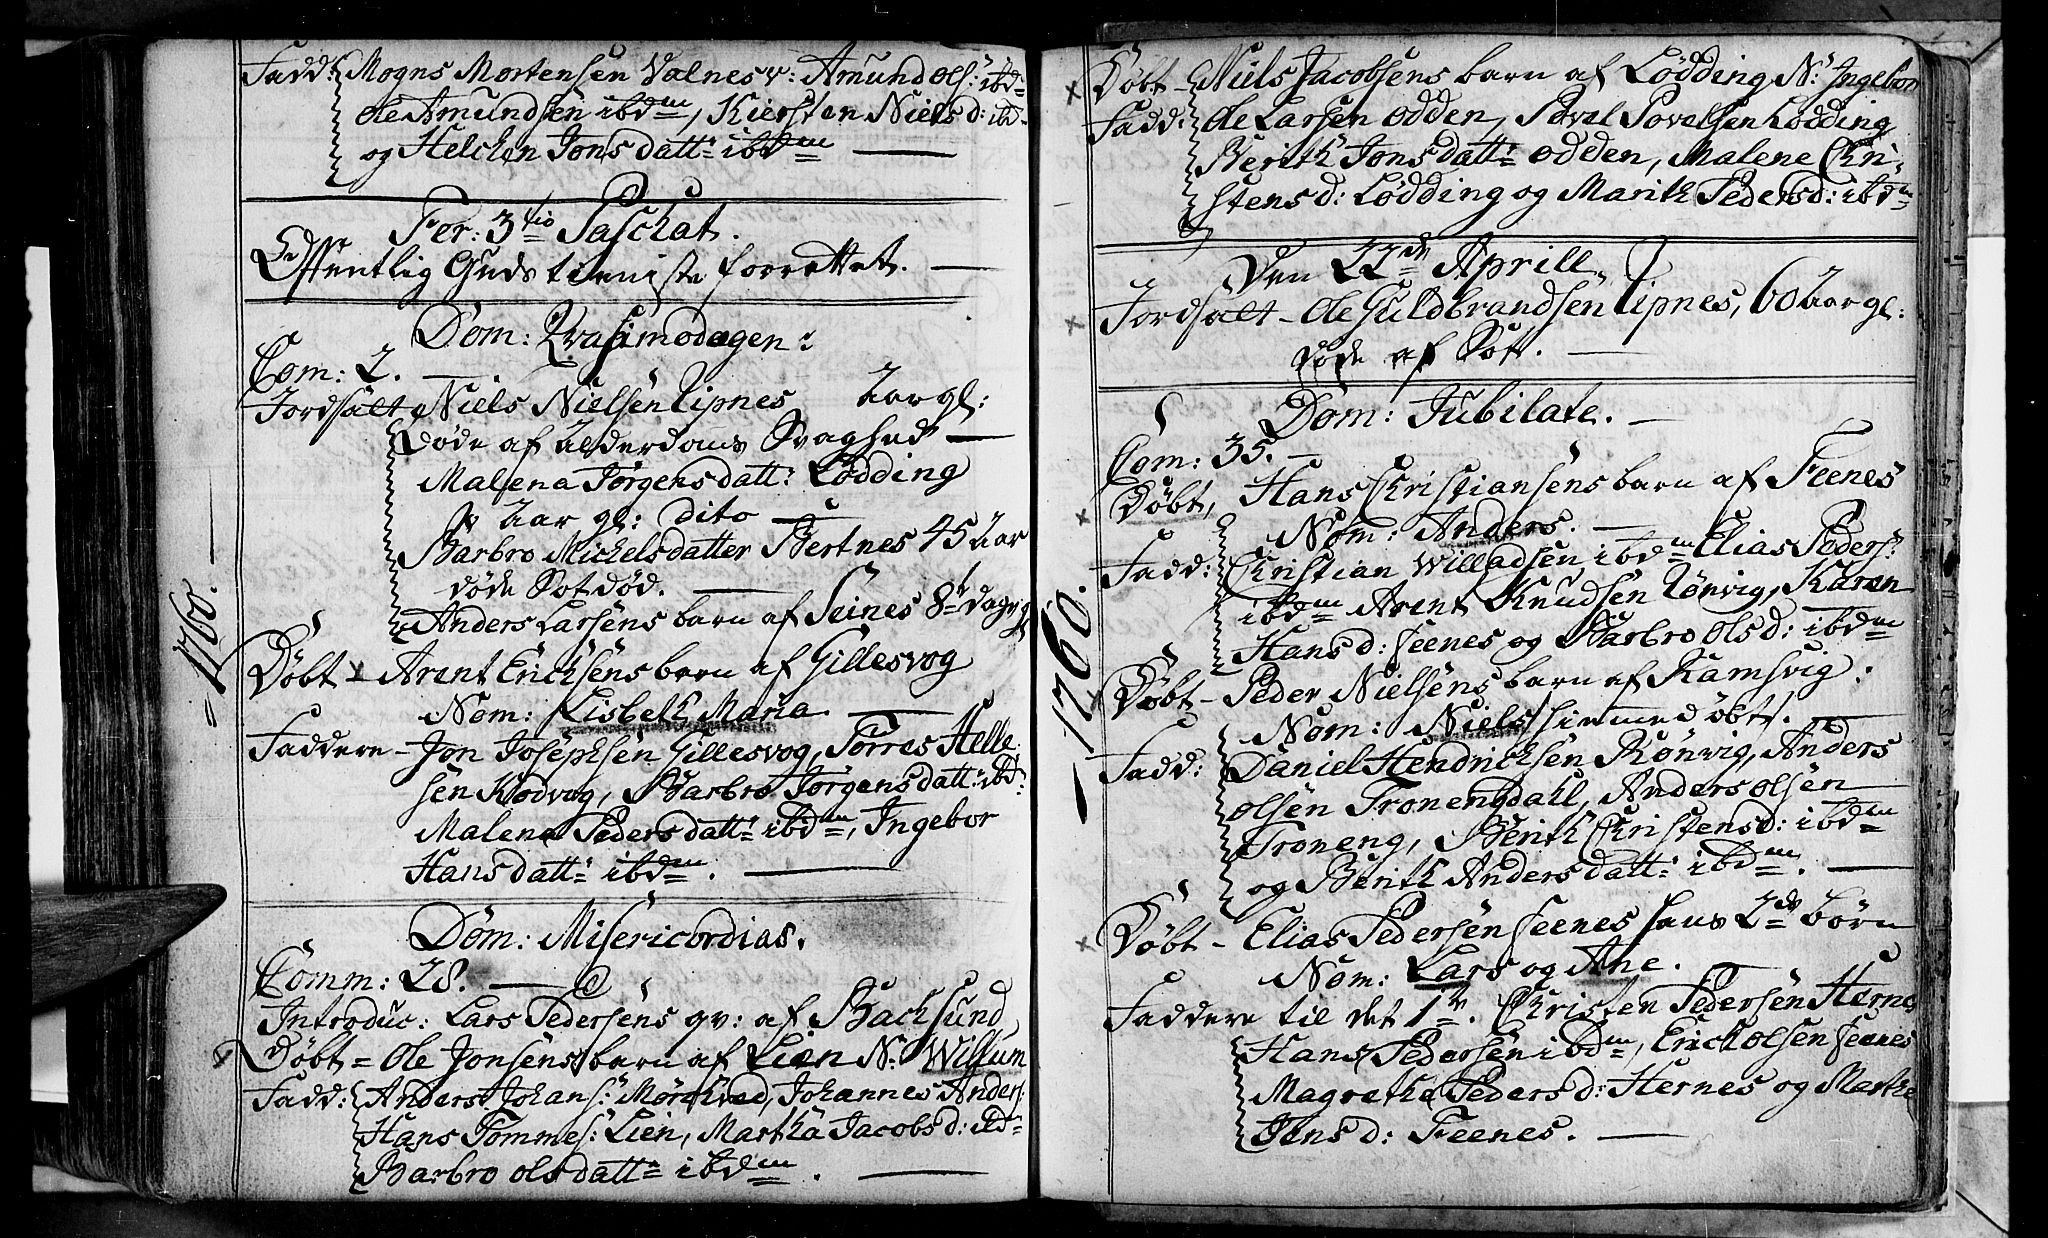 Fadd: Mogns Mortensen Valnes v: Amund Ols: ibd=
Ole Amundsen ibd=m, Kiersten Niels d: ibd=
og Helchen Jons datt: ibdm
Fer: 3tio Paschat.
Offentlig Guds tieniste forrettet.
Dom: Qvasimodogen:
Com: 2.
Jordfält Niels Nielsen Lipnes Aar gl:
døde af Alderdoms Svaghed
Malena Jørgensdatt: Lødding
Aar gl: dito
Barbro Mickelsdatter Bertnes 45 Aar
døde Sotdød.
Anders Larsens barn af Seines 8t dage gl
=1760.
Døbt Arent Ericksens barn af Gillesvog
Nom: Lisbeth Maria.
Faddere Jon Josephsen Gillesvog, Torres Helle
sen Kodvog, Barbro Jørgensdatt: ibd:
Malena Peders datt: ibdm, Ingebor
Hans datt: ibdm.
Dom: Misericordias.
Comm: 28.
Introduc: Lars Pedersens qv: af Backsund
Døbt = Ole Jonsens barn af Lien N: Willum
Fadd: Anders Johans: Mørchved, Johannes Anders:
Hans Tommes: Lien, Martha Jacobs d: ibd=
Barbro Olsdatt= ibdm.
Døbt - Niels Jacobsens barn af Lødding N: Ingebor
Fadd: Ole Larsen Odden, Povel Povelsen Lødding
Berith Jonsdatt: Odden, Malene Chri-
stens d: Lødding og Marith Pedersd: ibdm
Den 22de Aprill.
Jordfält - Ole Guldbrandsen Lipnes, 60 Aar gl:
døde af Sott.
Dom: Jubilate.
Com: 35.
Døbt, Hans Christiansens barn af Feenes
Nom: Anders.
Fadd: Christian Willadsen ibdm Elias Peders:
ibdm Arent Knudsen Lønvig, Karen
Hans d: Feenes og Barbro Ols d: ibdm
1760.
Døbt - Peder Nielsens barn af Ramsvig.
Nom: Niels hiemmedøbt.
Fadd: Daniel Hendricksen Rønvig, Anders
Olsen Tronengdahl, Anders Olsen
Troneng, Berith Christensd: ibdm
og Berith Anders datt: ibdm.
Døbt - Elias Pedersen Feenes hans 2de børn
Nom: Lars og Ane.
Faddere til det 1te. Christen Pedersen Hernes
Hans Pedersen ibdm, Erick Olsen Feenes
Magrethe Peders d: Hernes og Marthe
Jens d: Feenes.